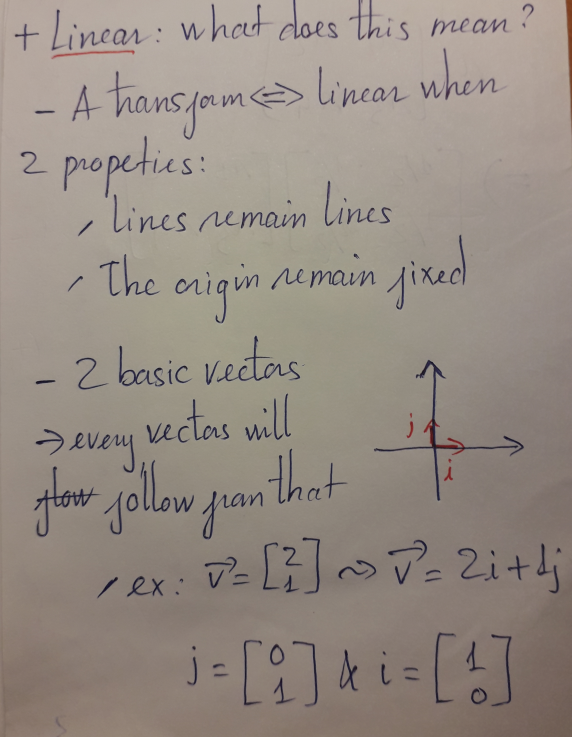 + Linear: what does this mean?
- A transfom <=> linear when
2 propeties:
, lines remain lines
, The origin remain fixed
- 2 basic vectors
→ every vectors will
flow follow from that
j
i
, ex: v⃗ = [2 1] ~> v⃗ = 2i + 1j
j = [0 1] & i = [1 0]